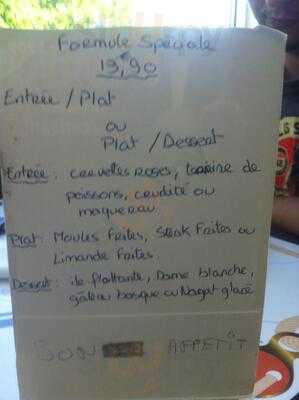 Formule Spéciale
13,90
Entrée / Plat
ou
Plat / Dessert
Entrée : crevettes roses, terrine de
poissons, crudité ou
maquereau.
Plat : Moules Frites, Steak Frites ou
Limande Frites.
Dessert : île flottante, Dame blanche,
gâteau basque ou Nogat glacé
BON APPETIT